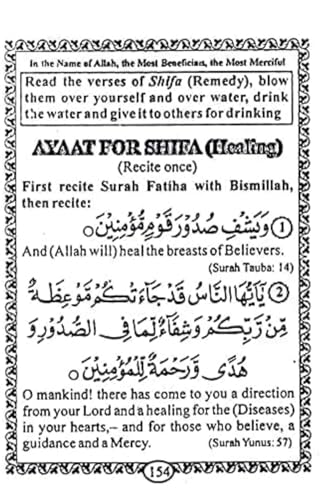 In the Name of Allah, the Most Benefician, the Most Merciful
Read the verses of Shifa (Remedy), blow
them over yourself and over water, drink
the water and give it to others for drinking
AYAAT FOR SHIFA (Healing)
(Recite once)
First recite Surah Fatiha with Bismillah,
then recite:
① وَيَشْفِ صُدُوْرَ قَوْمٍ مُّؤْمِنِيْنَ ○
And (Allah will) heal the breasts of Believers.
(Surah Tauba: 14)
② يٰۤاَيُّهَا النَّاسُ قَدْ جَآءَتْكُمْ مَّوْعِظَةٌ
مِّنْ رَّبِّكُمْ وَشِفَآءٌ لِّمَا فِى الصُّدُوْرِ وَ
هُدًى وَّرَحْمَةٌ لِّلْمُؤْمِنِيْنَ ○
O mankind! there has come to you a direction
from your Lord and a healing for the (Diseases)
in your hearts,– and for those who believe, a
guidance and a Mercy. (Surah Yunus: 57)
154